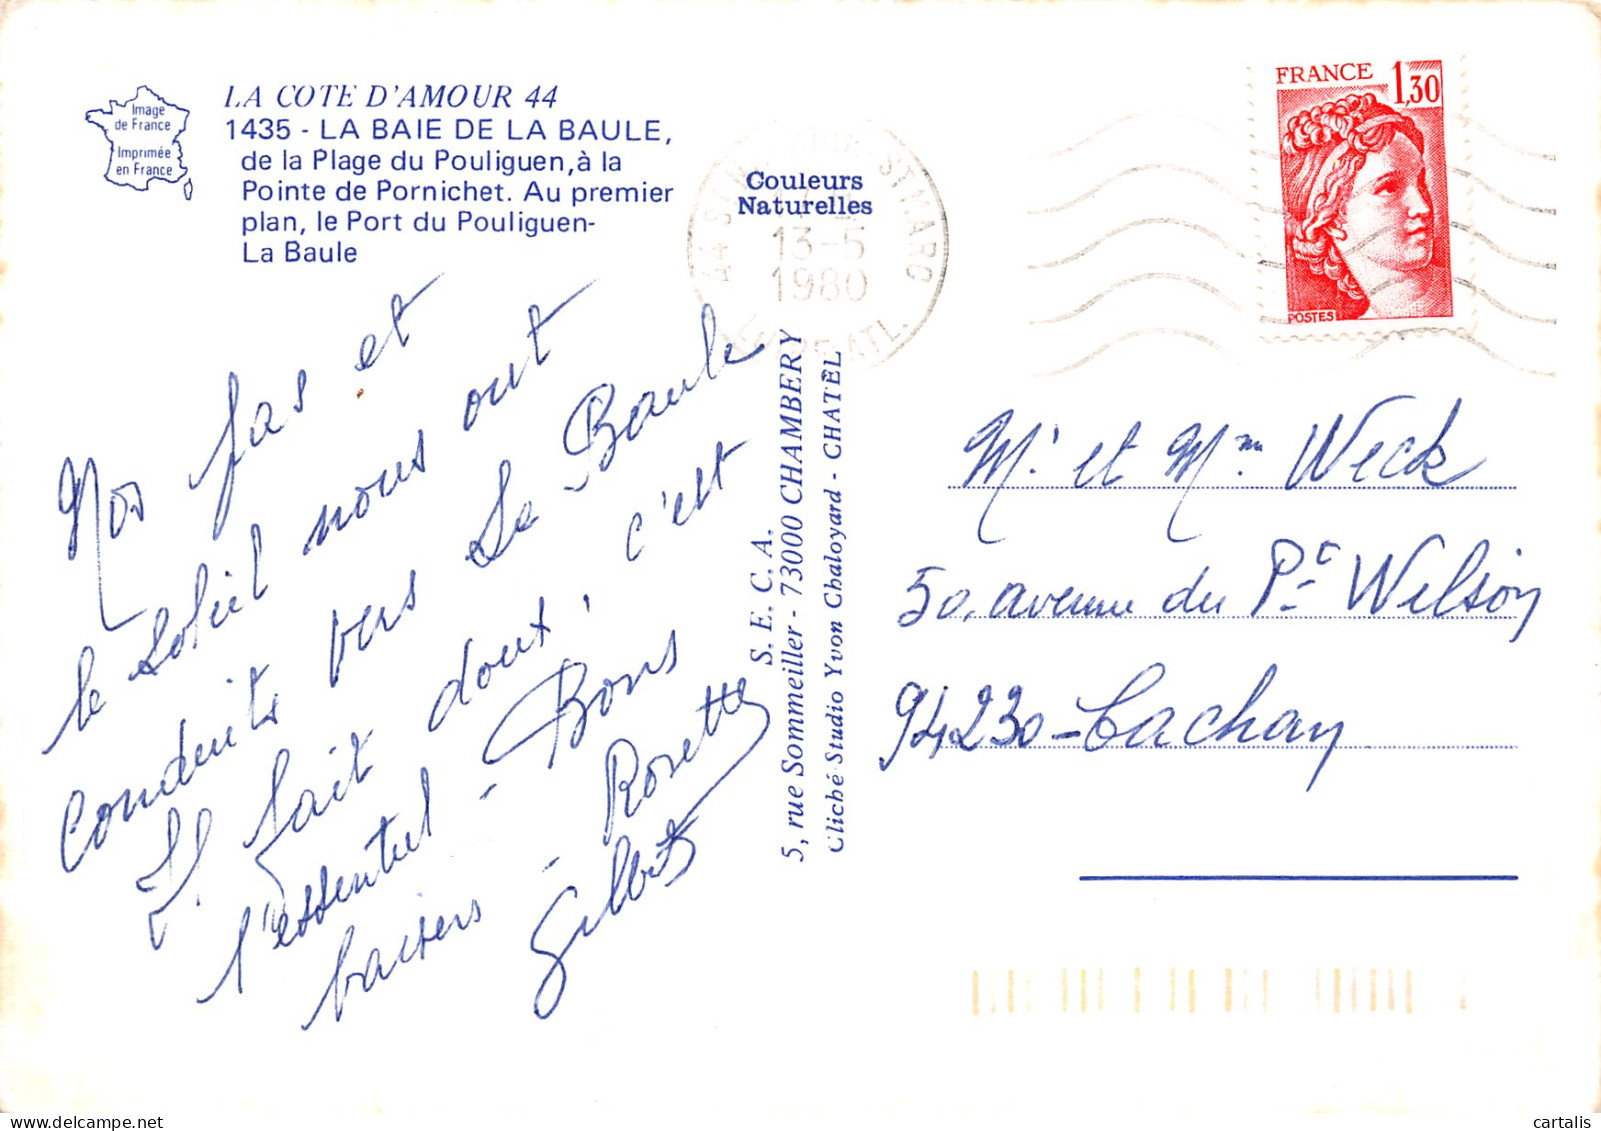 Image
de France
Imprimée
en France
LA COTE D'AMOUR 44
1435 - LA BAIE DE LA BAULE,
de la Plage du Pouliguen, à la
Pointe de Pornichet. Au premier
plan, le Port du Pouliguen-
La Baule
Couleurs
Naturelles
13-5
1980
FRANCE 1,30
POSTES
Nos pas et
le soleil nous ont
conduits vers La Baule
Il fait doux, c'est
l'essentiel - Bons
baisers - Rosette
Gilbert
S. E. C. A.
5, rue Sommeiller - 73000 CHAMBERY
Cliché Studio Yvon Chaloyard - CHATEL
Mr et Mme Weck
50, avenue du Pt Wilson
94230 - Cachan
cartalis